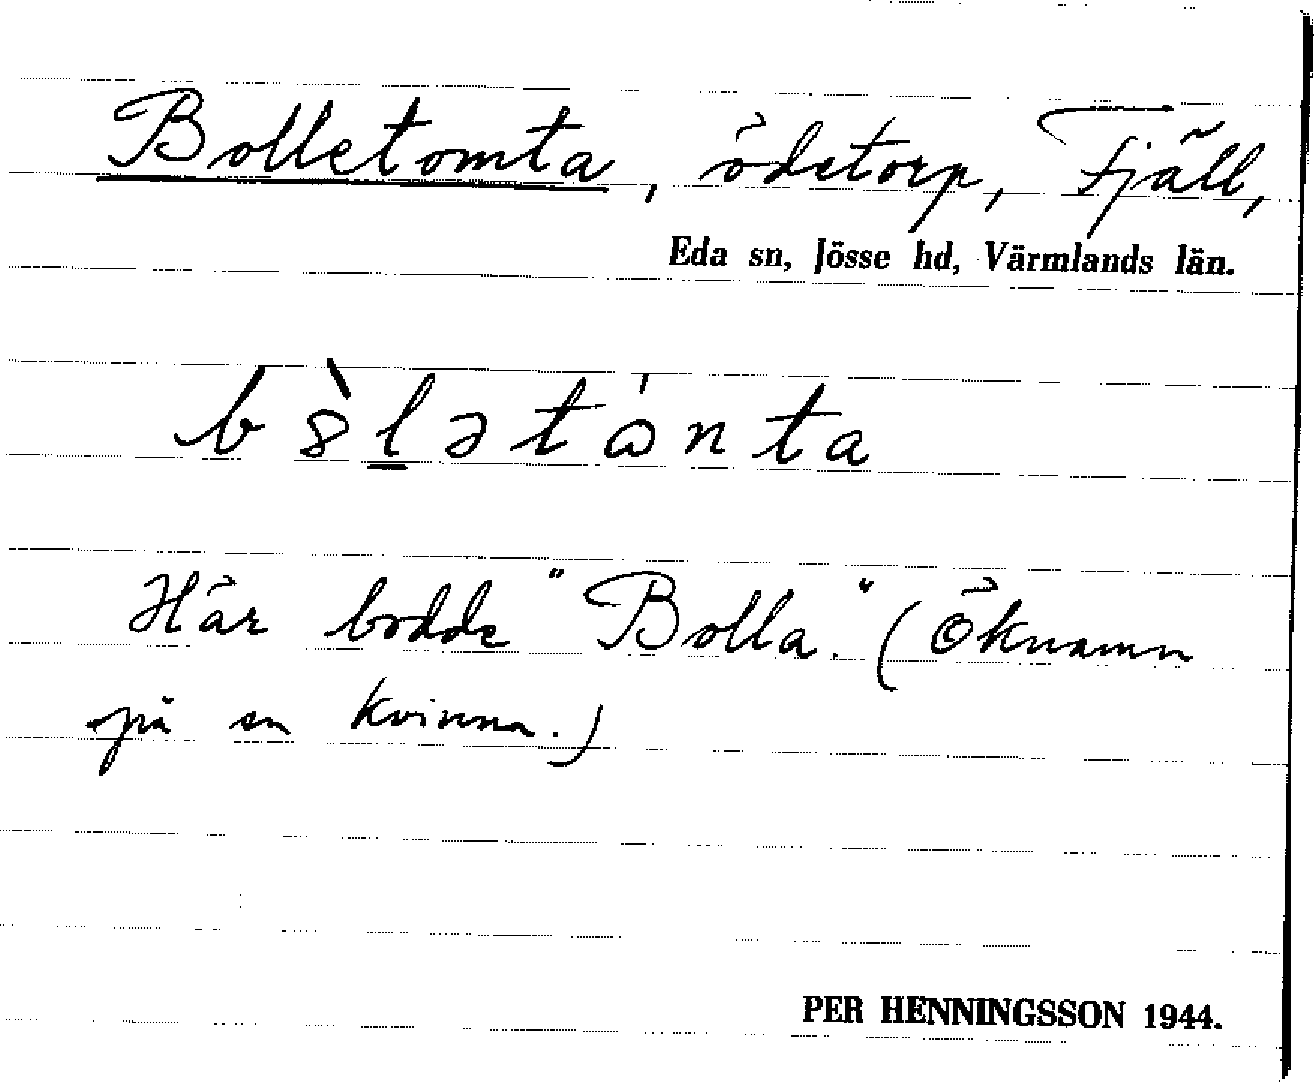 Bolletomta, ödetorp, Fjäll,
Eda sn, Jösse hd, Värmlands län.
b8̀l̲ətɷ́nta
Här bodde "Bolla." (Öknamn
på en kvinna.)
PER HENNINGSSON 1944.